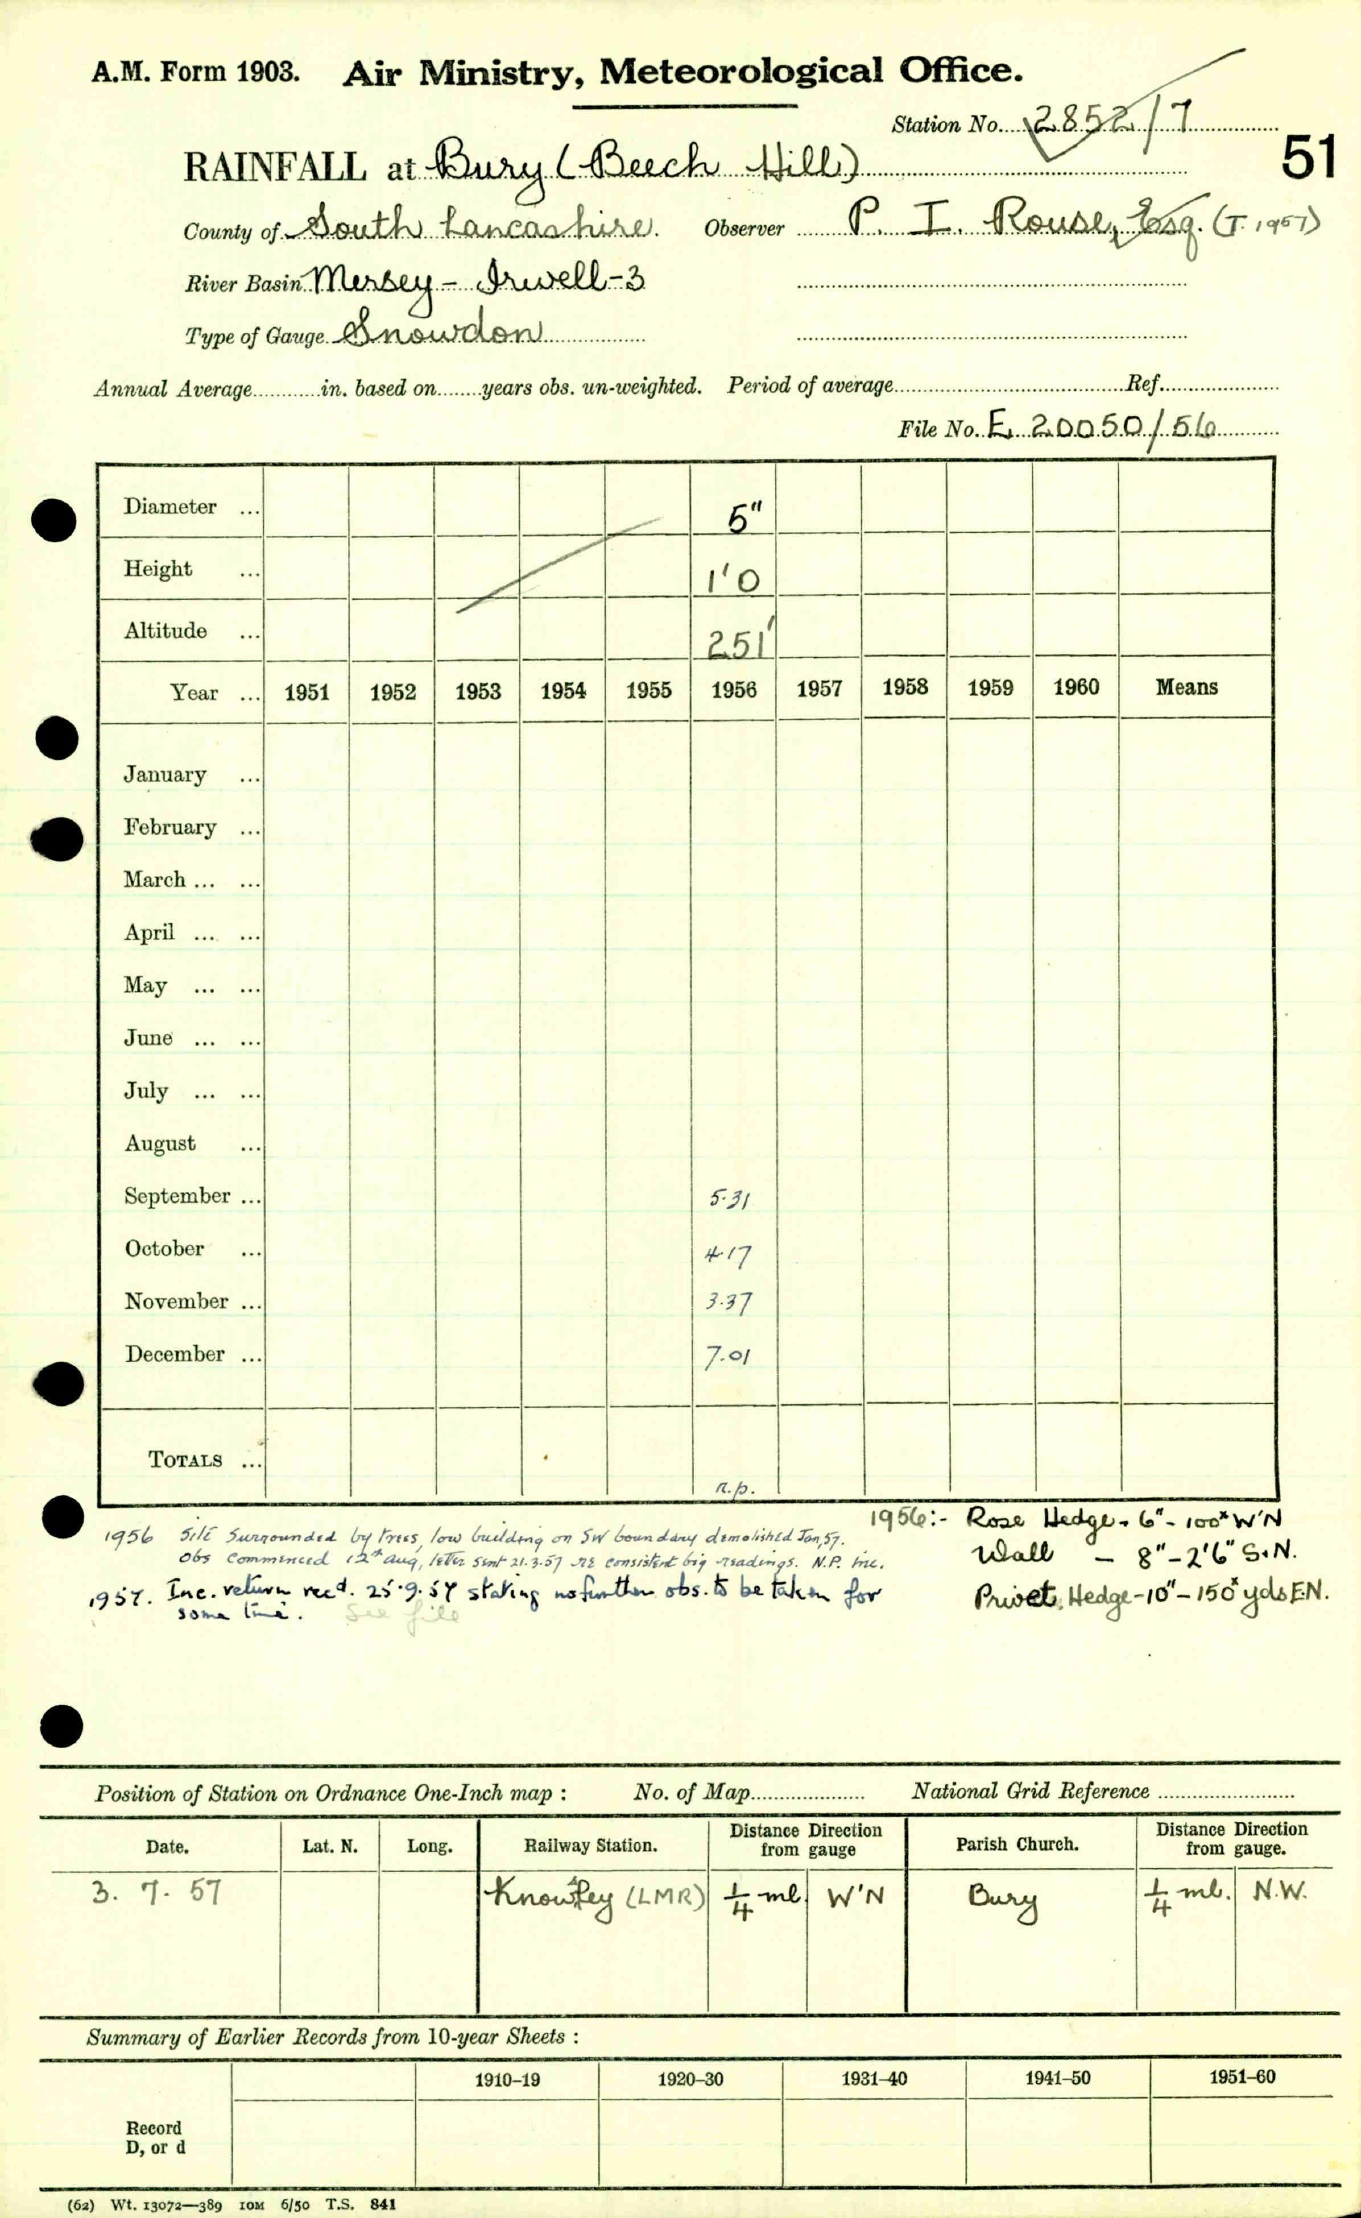 A.M. Form 1903. Air Ministry, Meteorological Office.
Station No. 2852/7
51
RAINFALL at Bury (Beech Hill)
County of South Lancashire. Observer P. I. Rouse, Esq. (T. 1957)
River Basin Mersey - Irwell-3
Type of Gauge Snowdon
Annual Average............in. based on........years obs. un-weighted. Period of average............Ref............
File No. E 20050/56
Diameter ... 5"
Height ... 1'0
Altitude ... 251'
Year ... 1951 1952 1953 1954 1955 1956 1957 1958 1959 1960 Means
January ...
February ...
March ... ...
April ... ...
May ... ...
June ... ...
July ... ...
August ...
September ... 5.31
October ... 4.17
November ... 3.37
December ... 7.01
TOTALS ... n.p.
1956 Site surrounded by trees, low building on SW boundary demolished Jan, 57.
Obs commenced 12th Aug, letter sent 21.3.57 re consistent big readings. N.P. inc.
1957. Inc. return recd. 25.9.57 stating no further obs. to be taken for
some time. See file
1956:- Rose Hedge - 6" - 100x W'N
Wall - 8" - 2'6" S.N.
Privet Hedge - 10" - 150x yds EN.
Position of Station on Ordnance One-Inch map : No. of Map............ National Grid Reference ............
Date. Lat. N. Long. Railway Station. Distance Direction from gauge Parish Church. Distance Direction from gauge.
3. 7. 57 Knowsley (LMR) 1/4 ml. W'N Bury 1/4 ml. N.W.
Summary of Earlier Records from 10-year Sheets :
1910–19 1920–30 1931–40 1941–50 1951–60
Record
D, or d
(62) Wt. 13072—389 10M 6/50 T.S. 841